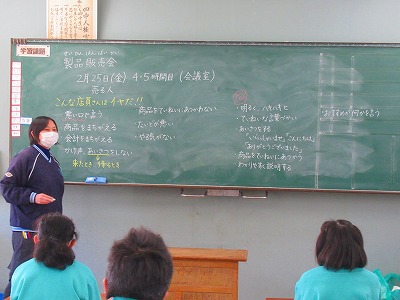 学習課題
せいひん はんばいかい
製品販売会
2月25日(金) 4・5時間目 (会議室)
売る人
こんな店員さんは イヤだ!!
悪い口と言う
商品をまちがえる
会計をまちがえる
かけ声、あいさつをしない
来たとき 帰るとき
商品をていねいにあつかわない
たいどが悪い
やる気がない
明るく、ハキハキと
ていねいな言葉づかい
あいさつをする
「いらっしゃいませ」「こんにちは」
「ありがとうございました」
商品をていねいにあつかう
わかりやすく説明する